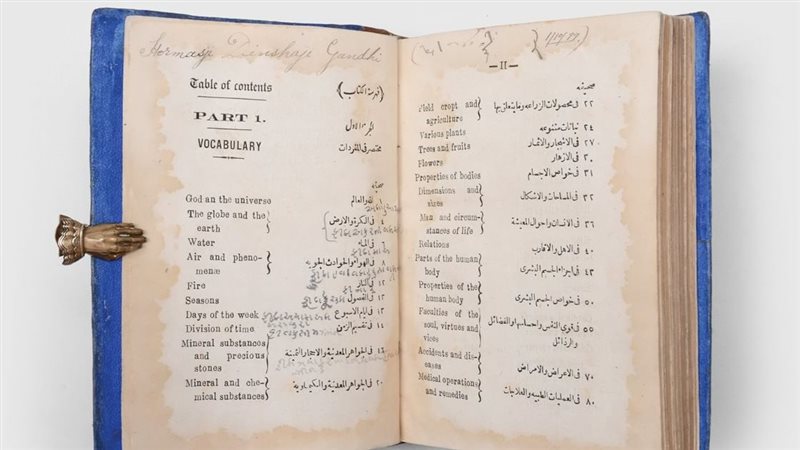 Hormasji Dinshaji Gandhi
Table of contents
(فهرسة الكتاب)
PART 1.
الجزء الاول
VOCABULARY
مختصر في المفردات
صحيفه
God an the universe الله والعالم
The globe and the
earth
٤ في الكرة والارض
Water ٦ في الماء
Air and pheno-
menæ
٨ في الهواء والحوادث الجويه
Fire ١٢ في النار
Seasons ١٢ في الفصول
Days of the week ١٣ في ايام الاسبوع
Division of time ١٤ في تقسيم الزمن
Mineral substances
and precious
stones
١٦ في الجواهر المعدنية والاحجار الثمينة
Mineral and che-
mical substances
٢٠ في الجواهر المعدنية والكيماوية
—II—
صحيفه
Field cropt and
agriculture
٢٢ في محصولات الزراعه وما يتعلق بها
Various plants ٢٤ نباتات متنوعه
Trees and fruits ٢٧ في الاشجار والاثمار
Flowers ٣٠ في الازهار
Properties of bodies ٣١ في خواص الاجسام
Dimensions and
sizes
٣٢ في المساحات والاشكال
Man and circum-
stances of life
٣٦ في الانسان واحوال المعيشة
Relations ٤٠ في الاهل والاقارب
Parts of the human
body
٤٣ في اجزاء الجسم البشرى
Properties of the
human body
٥٠ في خواص الجسم البشرى
Faculties of the
soul, virtues and
vices
٥٥ في قوي النفس واحساسها والفضائل
والرذائل
Accidents and dis-
eases
٧٠ في الاعراض والامراض
Medical operations
and remedies
٨٠ في العمليات الطبيه والعلاجات